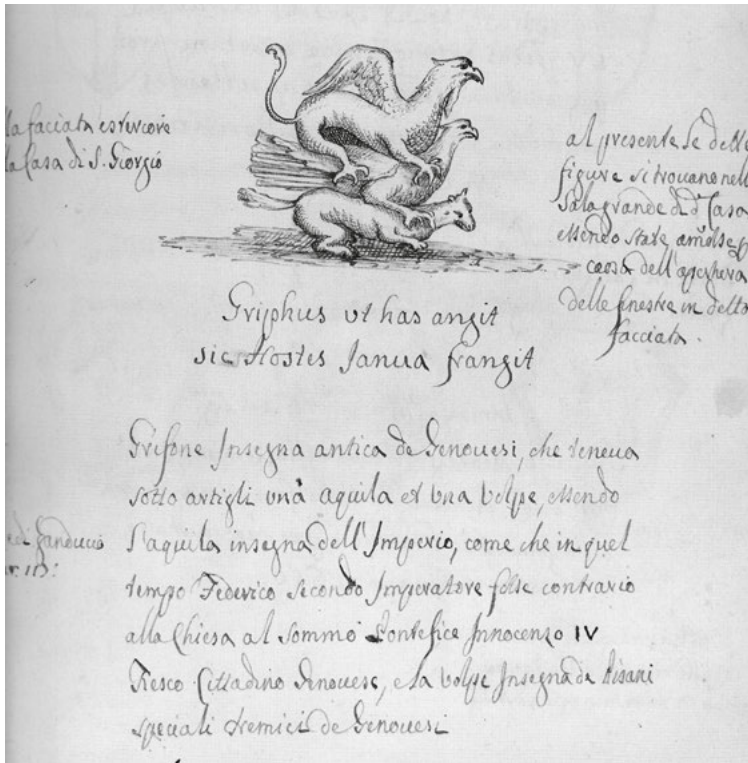 la faciata esteriore
la Casa di S. Giorgio
al presente le dette
figure si trouano nell
sala grande di d.ª Casa
essendo state amosse p
causa dell'apertura
delle finestre in detta
facciata.
Griphus ut has angit
sic Hostes Janua frangit
Grifone Insegna antica de Genouesi, che teneua
sotto artigli una aquila et una uolpe, essendo
l'aquila insegna dell'Imperio, come che in quel
tempo Federico secondo Imperatore fosse contrario
alla Chiesa al sommo Pontefice Innocenzo IV
Fiesco Cittadino Genouese, e la uolpe Insegna de Pisani
speciali nemici de Genouesi
Ganducio